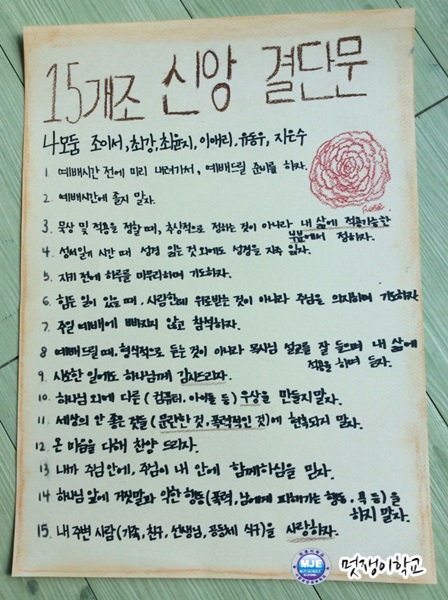 15개조 신앙 결단문
4모둠 조이서, 최강, 최윤지, 이애리, 유동우, 지은수
1. 예배시간 전에 미리 내려가서, 예배드릴 준비를 하자.
2. 예배시간에 졸지 말자.
Rose
3. 묵상 및 적용을 정할 때, 추상적으로 정하는 것이 아니라 내 삶에 적용가능한
부분에서 정하자.
4. 성서읽기 시간 때 성경 읽는 것 외에도 성경을 자주 읽자.
5. 자기 전에 하루를 마무리하며 기도하자.
6. 힘든 일이 있을 때, 사람한테 위로받는 것이 아니라 주님을 의지하며 기도하자
7. 주일 예배에 빠지지 않고 참석하자.
8 예배드릴 때, 형식적으로 듣는 것이 아니라 목사님 설교를 잘 들으며 내 삶에
적용을 하며 듣자.
9. 사소한 일에도 하나님께 감사드리자.
10. 하나님 외에 다른 (컴퓨터, 아이돌 등) 우상을 만들지말자.
11. 세상의 안 좋은 것들 (문란한 것, 폭력적인 것)에 현혹되지 말자.
12 온 마음을 다해 찬양 드리자.
13 내가 주님 안에, 주님이 내 안에 함께하심을 믿자.
14 하나님 앞에 거짓말과 악한 행동(폭력, 남에게 피해가는 행동, 욕 등)을
하지 말자.
15. 내 주변 사람(가족, 친구, 선생님, 공동체 식구)을 사랑하자.
MJE
멋쟁이학교